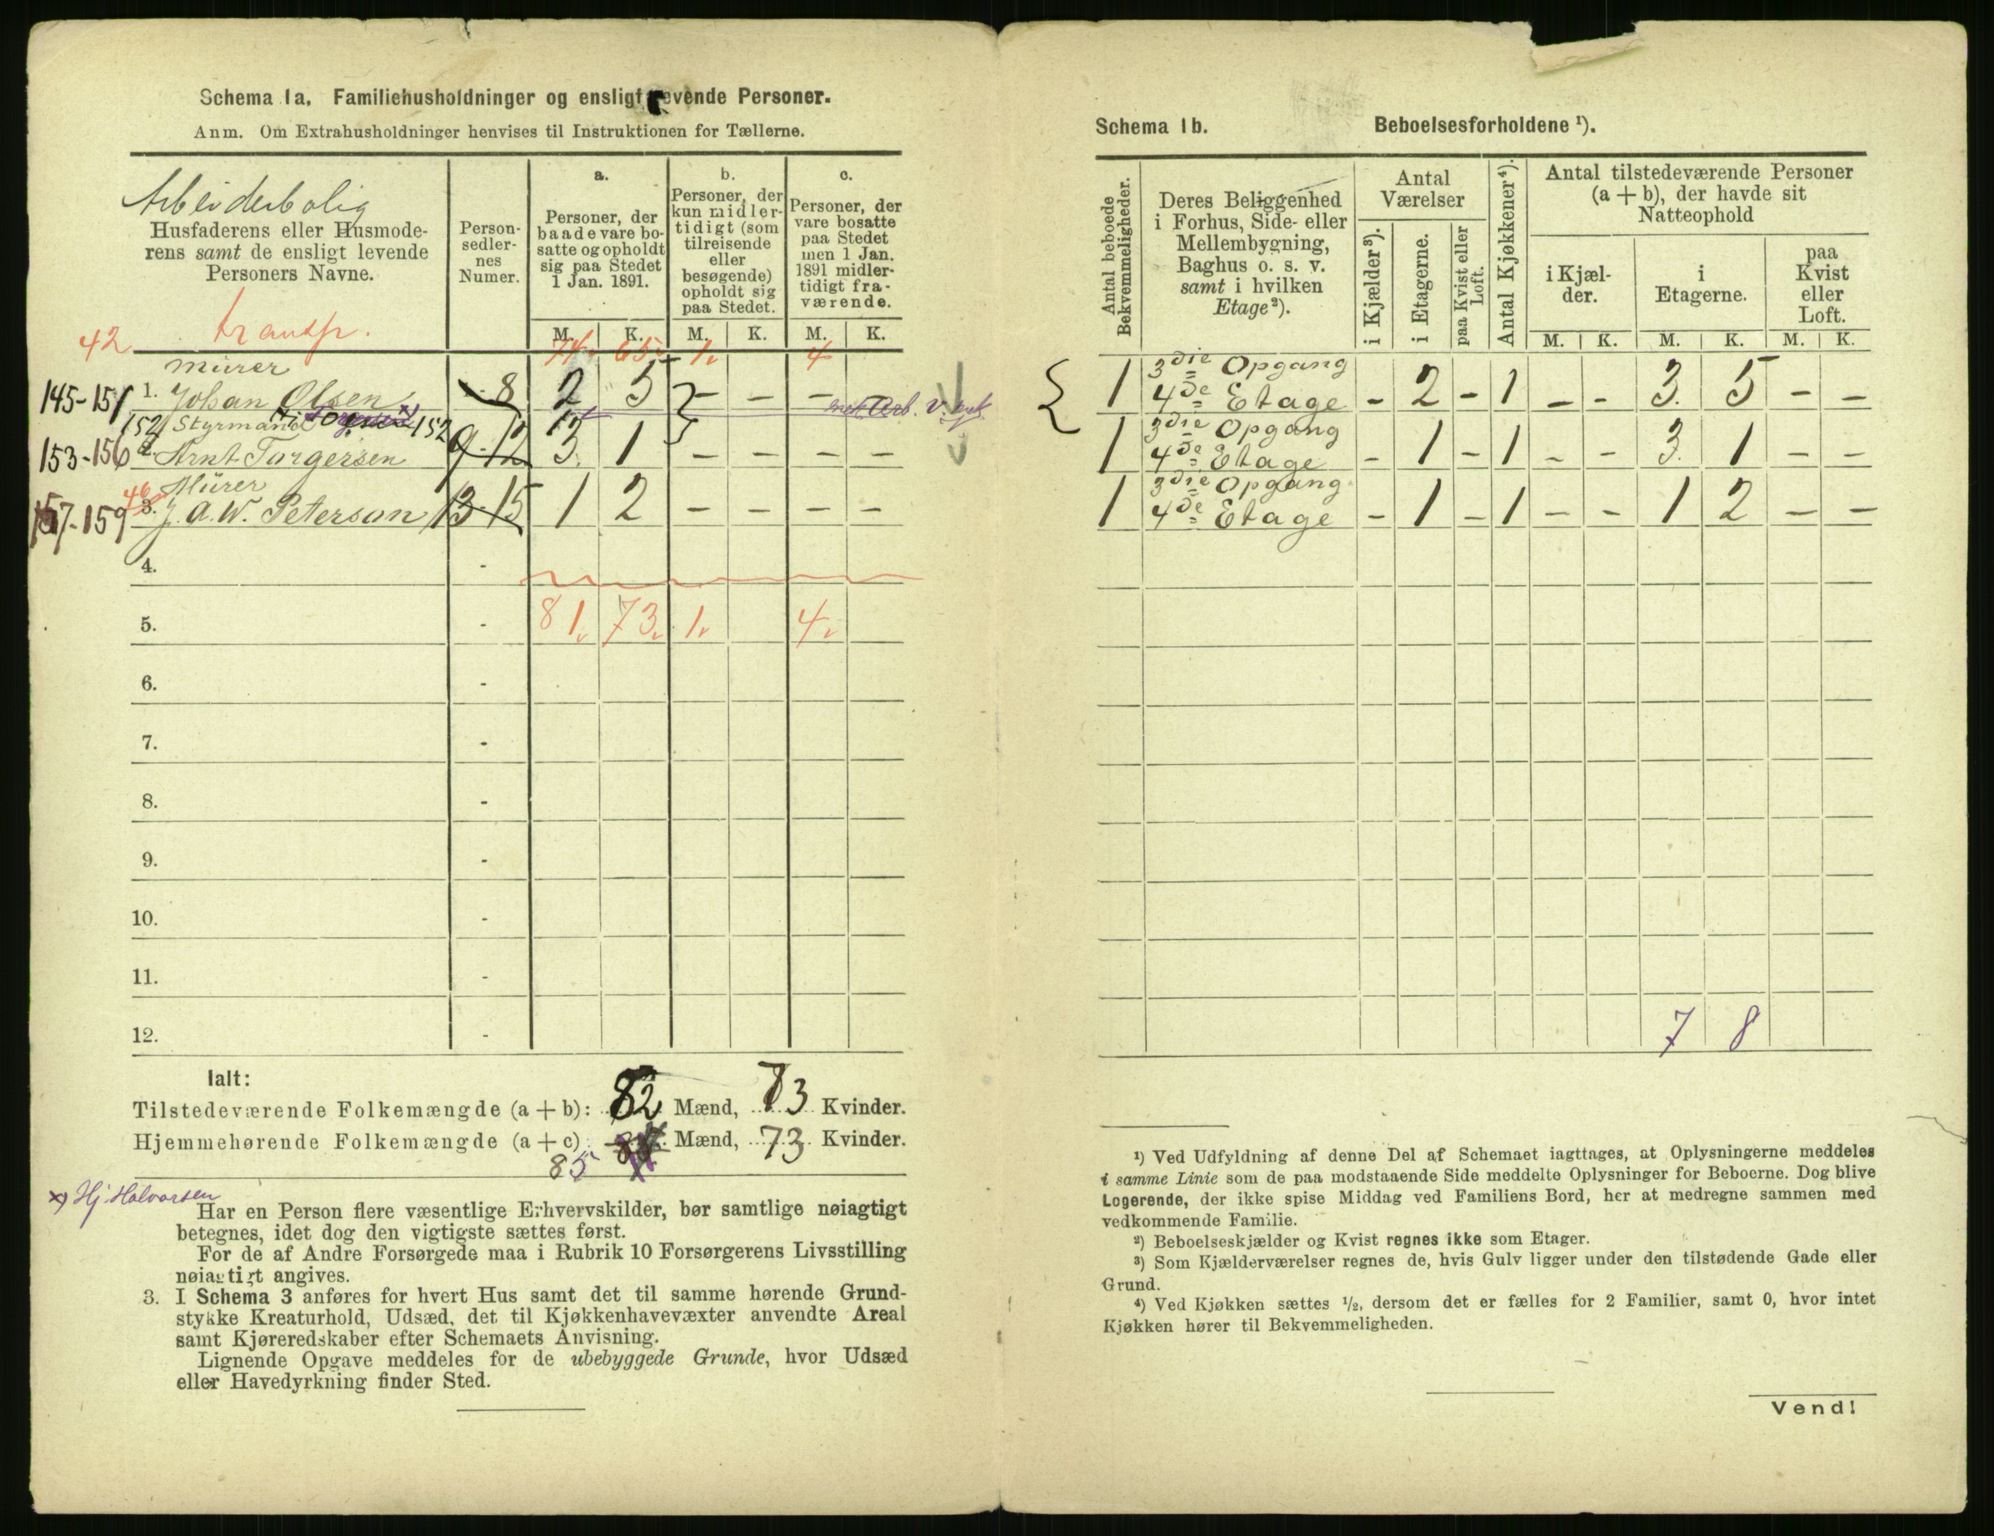 Schema 1a. Familiehusholdninger og ensligt levende Personer.
Anm. Om Extrahusholdninger henvises til Instruktionen for Tællerne.
Arbeiderbolig
Husfaderens eller Husmode-
rens samt de ensligt levende
Personers Navne.
42 transp.
Person-
sedler-
nes
Numer.
a.
Personer, der
baade vare bo-
satte og opholdt
sig paa Stedet
1 Jan. 1891.
M. K.
74 65
b.
Personer, der
kun midler-
tidigt (som
tilreisende
eller
besøgende)
opholdt sig
paa Stedet.
M. K.
1
c.
Personer, der
vare bosatte
paa Stedet
men 1 Jan.
1891 midler-
tidigt fra-
værende.
M. K.
4
Mürer
145-151 1. Johan Olsen - 8 2 5 - - - -
152 Styrmand 152
153-156 2. Arnt Torgersen 9-12 3 1 - - - -
46 Mürer
157-159 3. J. A. W. Peterson 13-15 1 2 - - - -
4. -
5. - 81 73 1 4
6. -
7. -
8. -
9. -
10. -
11. -
12. -
Ialt:
Tilstedeværende Folkemængde (a + b): 82 Mænd, 73 Kvinder.
Hjemmehørende Folkemængde (a + c): Mænd, 73 Kvinder.
85
x) Hj. Halvorsen
Har en Person flere væsentlige Erhvervskilder, bør samtlige nøiagtigt
betegnes, idet dog den vigtigste sættes først.
For de af Andre Forsørgede maa i Rubrik 10 Forsørgerens Livsstilling
nøiagtigt angives.
3. I Schema 3 anføres for hvert Hus samt det til samme hørende Grund-
stykke Kreaturhold, Udsæd, det til Kjøkkenhavevæxter anvendte Areal
samt Kjøreredskaber efter Schemaets Anvisning.
Lignende Opgave meddeles for de ubebyggede Grunde, hvor Udsæd
eller Havedyrkning finder Sted.
Schema 1b. Beboelsesforholdene ¹).
Antal beboede
Bekvemmeligheder.
Deres Beliggenhed
i Forhus, Side- eller
Mellembygning,
Baghus o. s. v.
samt i hvilken
Etage²).
Antal
Værelser
i Kjælder³).
i Etagerne.
paa Kvist eller
Loft.
Antal Kjøkkener⁴).
Antal tilstedeværende Personer
(a + b), der havde sit
Natteophold
i Kjæl-
der.
i
Etagerne.
paa
Kvist
eller
Loft.
M. K. M. K. M. K.
3die Opgang
1 4de Etage - 2 - 1 - - 3 5 - -
3die Opgang
1 4de Etage - 1 - 1 - - 3 1 - -
3die Opgang
1 4de Etage - 1 - 1 - - 1 2 - -
7 8
¹) Ved Udfyldning af denne Del af Schemaet iagttages, at Oplysningerne meddeles
i samme Linie som de paa modstaaende Side meddelte Oplysninger for Beboerne. Dog blive
Logerende, der ikke spise Middag ved Familiens Bord, her at medregne sammen med
vedkommende Familie.
²) Beboelseskjælder og Kvist regnes ikke som Etager.
³) Som Kjælderværelser regnes de, hvis Gulv ligger under den tilstødende Gade eller
Grund.
⁴) Ved Kjøkken sættes ½, dersom det er fælles for 2 Familier, samt 0, hvor intet
Kjøkken hører til Bekvemmeligheden.
Vend!